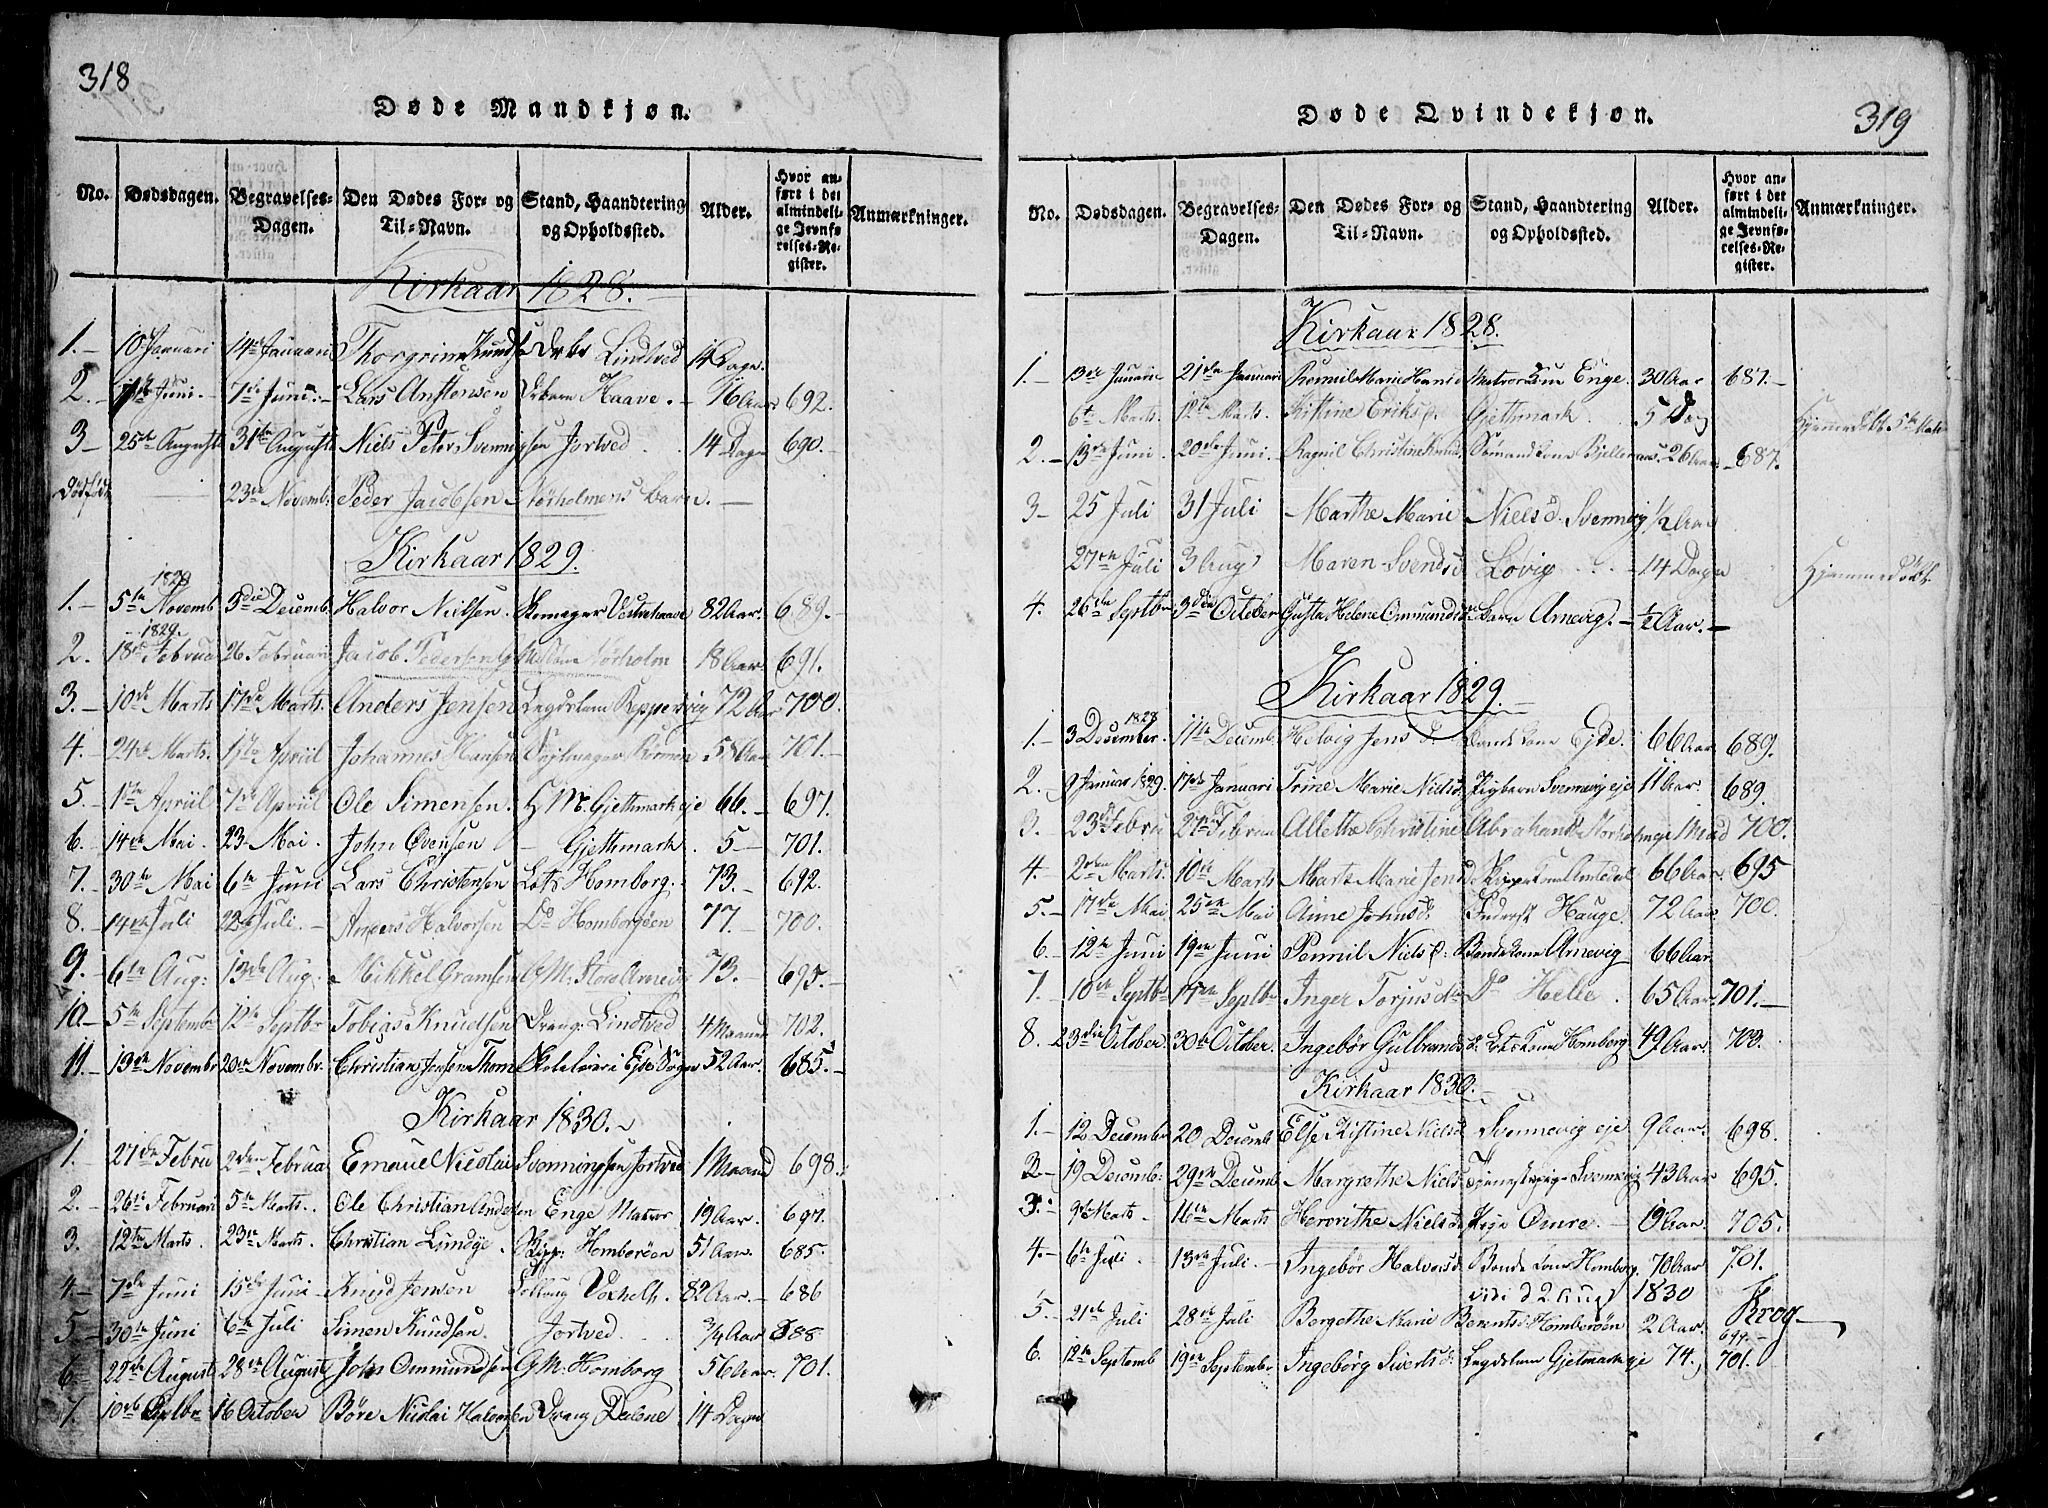 318
Døde Mandkjøn.
No. Dødsdagen. Begravelses-Dagen. Den Dødes For- og Til-Navn. Stand, Haandtering og Opholdssted. Alder. Hvor anført i det almindelige Jevnførelses-Register. Anmærkninger.
Kirkaar 1828.
1. 10 Januari 14de Januari Thorgrim Knuds Lindtved 14 Dage.
2. Juni 7de Juni Lars Anstensen Haave 76 Aar 692.
3 25de Augusti 31te Augusti Niels Peter Svennigsen Jortved 14 Dage 690.
Dødfødt 23de Novemb. Peder Jacobsen Nørholmens Barn.
Kirkaar 1829.
1. 5te Novemb 1828 3die Decemb. Halvor Nielsen 82 Aar. 689.
1829.
2. 18de Februa 26 Februari Jacob Pedersen Nørholm 18 Aar 691.
3. 10de Marts 17de Marts. Anders Jensen Lægdslem Reppervig 72 Aar 700.
4. 24de Marts. Apriil Johannes Hansen 701.
5. 1ste Apriil 7de Apriil Ole Simensen. H. M. Gjethmark eje 66. 697
6. 14de Mai. 23 Mai. John Øvensen Gjethmark. 5 701.
7. 30te Mai 6te Juni Lars Christensen Lots Homborg. 73. 692.
8. 14de Juli 22de Juli. Anders Halvorsen Do Homborgøen 77. 700.
9. 6te Aug: 13de Aug. Mikkel Gramsen G. M: Store Arnevig 73. 695.
10. 5te Septembr 12te Septbr Tobias Knudsen Dreng: Lindtved 4 Maaned 702.
11. 19de Novembr 20de Novembr. Christian Jensen Thom Skolelærer Eide Sogn 52 Aar. 685.
Kirkaar 1830.
1. 27de Febru Februa Emanel Nicolai Svennigsen Jortved 1 Maaned 698.
2. 26de Februari 5te Marts. Ole Christian Andersen Enge Matros 19 Aar. 697.
3. 12te Marts. 23de Marts. Christian Lundge Skipp: Homborøen 51 Aar. 685.
4. 7de Juni 15de Juni Knud Jensen 82 Aar. 686
5. 30te Juni 6te Juli Simen Knudsen. Jortved. 3/4 Aar 688
6 22de August 28de August John Ommundsen G. M: Homborg 56 Aar. 701.
7. 10de Octbr 16 October Børe Nicolai Halvorsen Dreng Dalene 14 Dage
319
Døde Qvindekjøn.
No. Dødsdagen. Begravelses-Dagen. Den Dødes For- og Til-Navn. Stand, Haandtering og Opholdssted. Alder. Hvor anført i det almindelige Jevnførelses-Register. Anmærkninger.
Kirkaar 1828.
1. 13de Januari 21de Januari Marie Matroskone Enge. 30 Aar 687.
6te Marts. 12te Marts. Kistine Eriksd. Gjethmark. 5 Dag Hjemmedøbt 5te Marts
2. 13de Juni 20de Juni. Ragnil Christine Sømandskone 26 Aar 687.
3 25 Juli 31 Juli Marthe Marie Nielsd. Svennevig 1/2 Aar
27de Juli 3 Aug Maren Svendsd Løvig 14 Dage Hjemmedøbt
4. 26de Septbr 3die October Gusta Helene Ommundsd Barn Arnevig. 1/2 Aar.
Kirkaar 1829.
1. 3 December 1828. 11te Decemb. Helvig Jensd. Eide. 66 Aar 689.
2. 9 Januar 1829. 17de Januari Trine Marie Nielsd. Pigebarn Svennevig eje 11 Aar. 689.
3. 23de Febru 27de Februar Allethe Christine Abrahamsd Nørholm eje 1 Maad 700.
4 2den Marts. 10de Marts Marte Marie Jensd. Skipperkone 66 Aar. 695
5. 17de Mai 25de Mai Anne Johnsd. Inderst Hauge. 72 Aar. 700.
6 12te Juni 19de Juni Pernil Nielsd: Bondekone Arnevig 66 Aar
7. 10de Septbr 17de Septbr Inger Torjusdtr Do Helle. 65 Aar 701.
8. 23die October. 30te October. Ingebør Gulbrandsd. Lotskone Homborg 49 Aar. 703.
Kirkaar 1830.
1. 12 December 20 Decemb Else Kistine Nielsd. Svennevig eje 9 Aar. 698.
2. 19 Decemb: 29de Decemb Margrethe Nielsd Tjenestepige Svennevig 43 Aar 695.
3. 9de Marts 16te Marts Nielsd. Omre. 19 Aar. 705.
4. 6te Juli. 13de Juli. Ingebør Halvorsd. Bondekone Homborg. 70 Aar 701.
vidi d 2 Aug 1830 Krog
5. 21de Juli 28de Juli Bergethe Marie Berentsd: Homborøen 2 Aar. 699.
6. 12te Septemb 19de Septembr Ingebørg Siverts d: Lægdslem Gjetmark eje 74. 701.